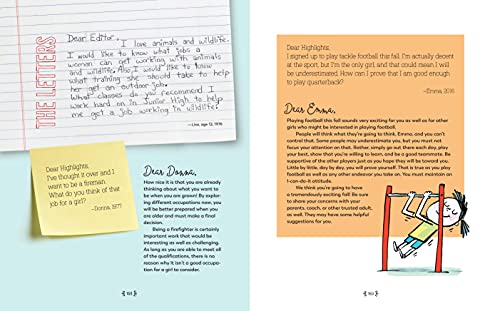 THE LETTERS
Dear Editor,
I love animals and wildlife.
I would like to know what jobs a
woman can get working with animals
and wildlife. Also, I would like to know
what training she should take to help
her get an outdoor job.
What classes do you recommend I
work hard on in Junior High to help
me get a job working in wildlife?
—Lisa, age 12, 1976
Dear Highlights,
I've thought it over and I
want to be a fireman.
What do you think of that
job for a girl?
–Donna, 1977
Dear Donna,
How nice it is that you are already
thinking about what you want to
be when you are grown! By explor-
ing different occupations now, you
will be better prepared when you
are older and must make a final
decision.
Being a firefighter is certainly
important work that would be
interesting as well as challenging.
As long as you are able to meet all
of the qualifications, there is no
reason why it isn't a good occupa-
tion for a girl to consider.
Dear Highlights,
I signed up to play tackle football this fall. I'm actually decent
at the sport, but I'm the only girl, and that could mean I will
be underestimated. How can I prove that I am good enough
to play quarterback?
–Emma, 2016
Dear Emma,
Playing football this fall sounds very exciting for you as well as for other
girls who might be interested in playing football.
People will think what they're going to think, Emma, and you can't
control that. Some may underestimate you, but you must not
focus your attention on that. Rather, simply go out there each day, play
your best, show that you're willing to learn, and be a good teammate. Be
supportive of the other players just as you hope they will be toward you.
Little by little, day by day, you will prove yourself. That is true as you play
football as well as any other endeavor you take on. You must maintain an
I-can-do-it attitude.
We think you're going to have
a tremendously exciting fall! Be sure
to share your concerns with your
parents, coach, or other trusted adult,
as well. They may have some helpful
suggestions for you.